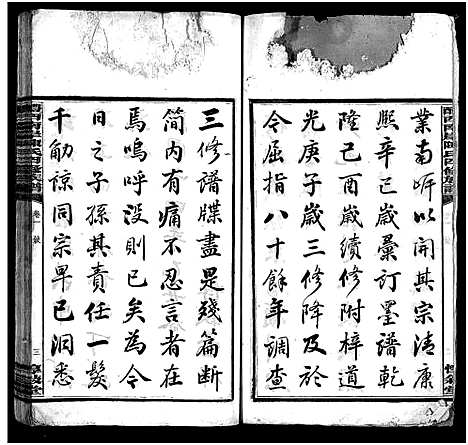 業南畊以開其宗清康
熙辛巳歲彙訂墨譜乾
隆己酉歲續修附梓道
光庚子歲三修降及於
今屈指八十餘年調查
三修譜牒盡是殘篇斷
簡內有痛不忍言者在
焉嗚呼沒則已矣為今
日之子孫其責任一髮
千觔諒同宗早已洞悉
卷一
三